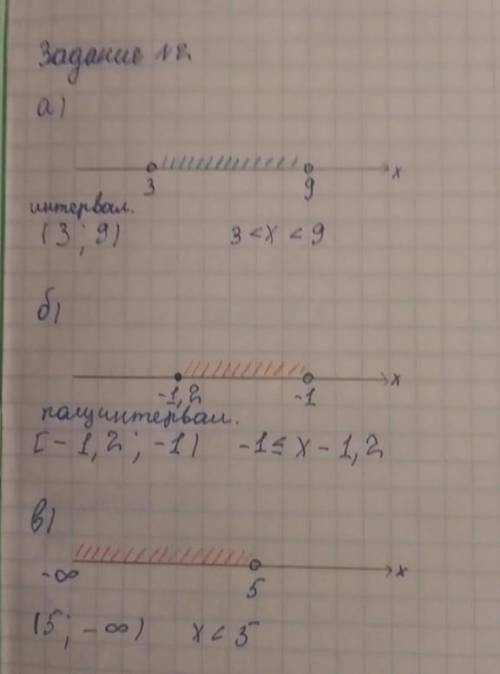 Задание №2
а)
3 9 x
интервал.
(3; 9) 3 < x < 9
б)
-1,2 -1 x
полуинтервал.
[-1,2; -1) -1 ≤ x - 1,2
в)
-∞ 5 x
(5; -∞) x < 5